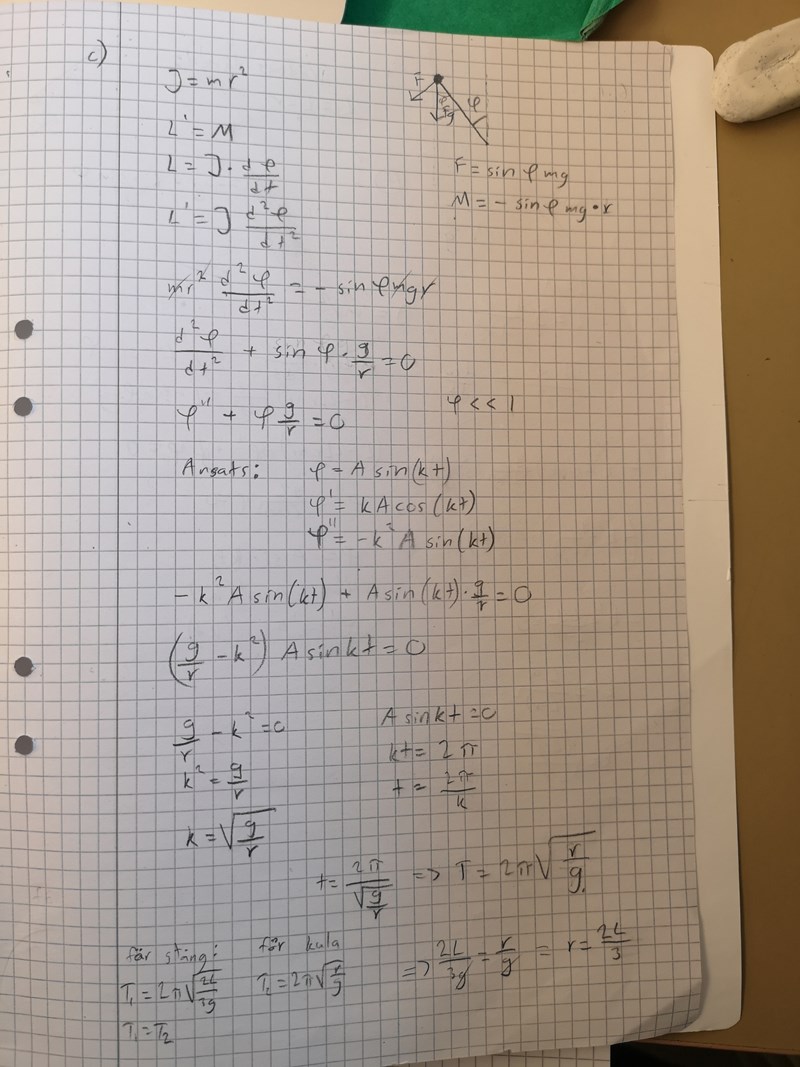 c)
J = mr²
L' = M
L = J · dφ/dt
L' = J d²φ/dt²
F
Fg
φ
F = sin φ mg
M = - sin φ mg • r
mr² d²φ/dt² = - sin φ mgr
d²φ/dt² + sin φ · g/r = 0
φ'' + φ g/r = 0
φ << 1
Ansats: φ = A sin(kt)
φ' = kA cos(kt)
φ'' = -k² A sin(kt)
-k² A sin(kt) + A sin(kt) · g/r = 0
(g/r - k²) A sin kt = 0
g/r - k² = 0
k² = g/r
k = √(g/r)
A sin kt = 0
kt = 2π
t = 2π/k
t = 2π/√(g/r) => T = 2π√(r/g)
för stång:
T₁ = 2π√(2L/3g)
T₁ = T₂
för kula
T₂ = 2π√(r/g)
=> 2L/3g = r/g = r = 2L/3